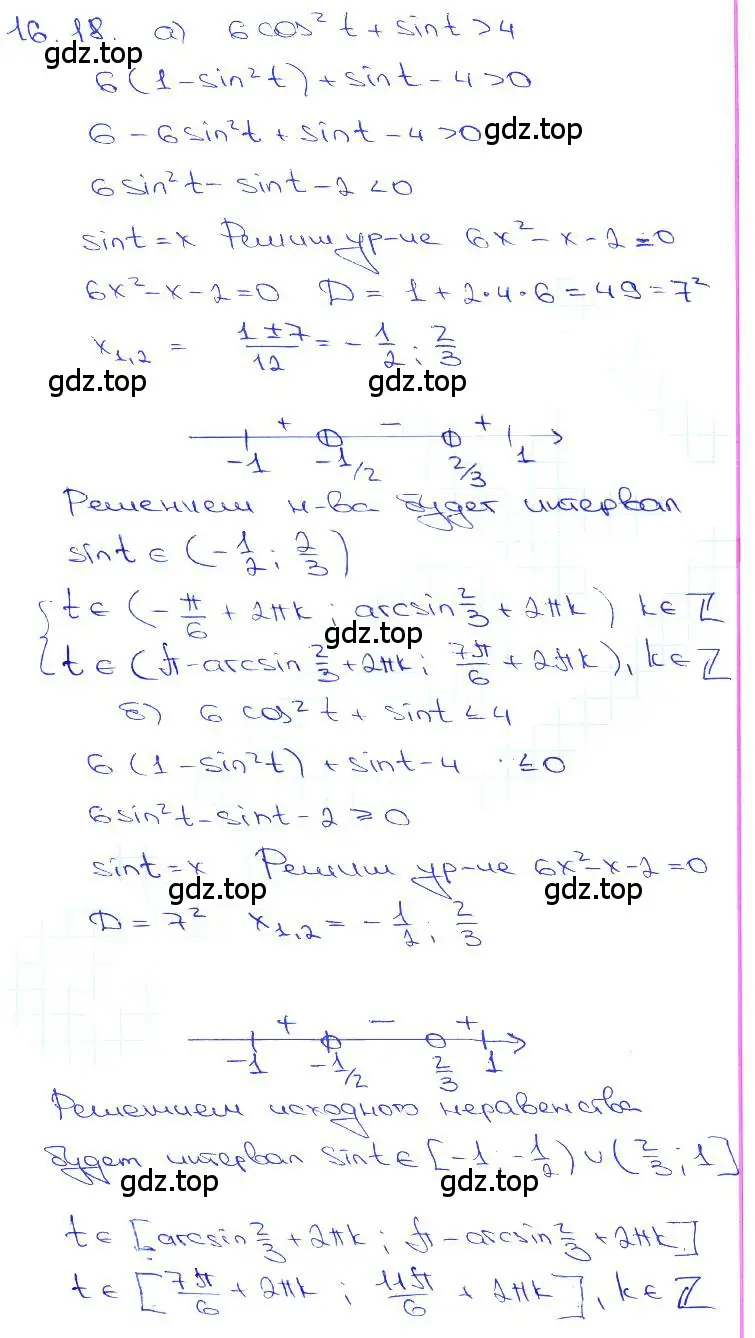 16.18. а) 6cos²t + sint > 4
gdz.top
6(1-sin²t) + sint - 4 > 0
6 - 6sin²t + sint - 4 > 0 gdz.top
6sin²t - sint - 2 < 0
sint = x Решим ур-ие 6x² - x - 2 = 0
6x² - x - 2 = 0 D = 1 + 2·4·6 = 49 = 7²
x₁,₂ = (1±7)/12 = -1/2; 2/3
gdz.top gdz.top
+ - +
-1 -1/2 2/3 1
Решением н-ва будет интервал
sint ∈ (-1/2; 2/3)
{ t ∈ (-π/6 + 2πk; arcsin 2/3 + 2πk) k ∈ Z
gdz.top
t ∈ (π - arcsin 2/3 + 2πk; 7π/6 + 2πk), k ∈ Z
б) 6cos²t + sint ≤ 4
6(1-sin²t) + sint - 4 ≤ 0
6sin²t - sint - 2 ≥ 0
sint = x Решим ур-ие 6x² - x - 2 = 0
gdz.top gdz.top
D = 7² x₁,₂ = -1/2; 2/3
+ - +
-1 -1/2 2/3 1
Решением исходного неравенства
будет интервал sint ∈ [-1; -1/2) ∪ (2/3; 1]
gdz.top gdz.top
t ∈ [arcsin 2/3 + 2πk; π - arcsin 2/3 + 2πk]
t ∈ [7π/6 + 2πk; 11π/6 + 2πk], k ∈ Z